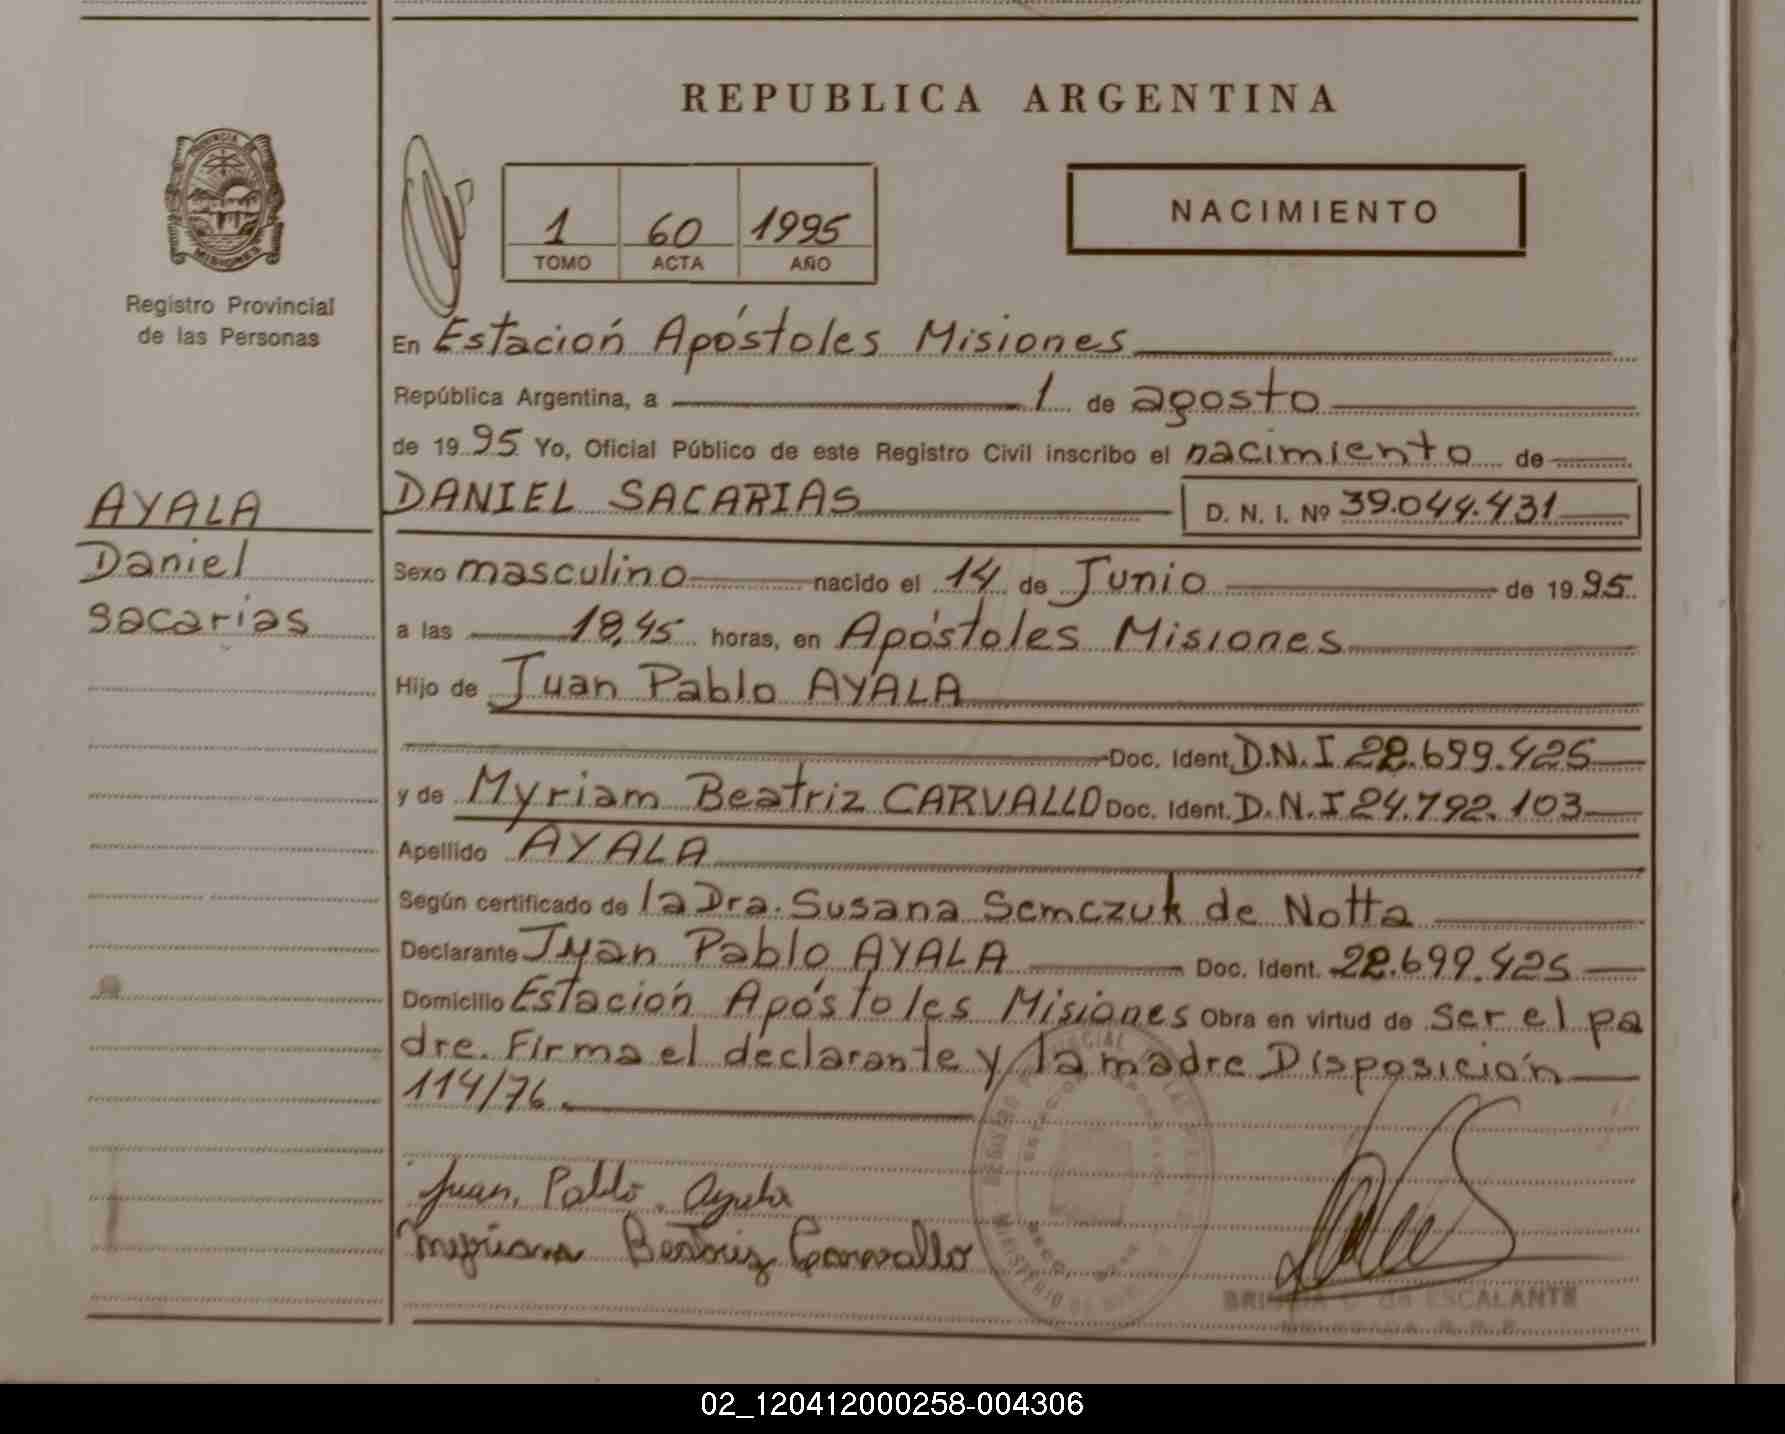 REPUBLICA ARGENTINA
PROVINCIA
MISIONES
Registro Provincial
de las Personas
1 60 1995
TOMO ACTA AÑO
NACIMIENTO
En Estación Apóstoles Misiones
República Argentina, a 1 de agosto
de 19 95 Yo, Oficial Público de este Registro Civil inscribo el nacimiento de
AYALA
Daniel
Sacarias
DANIEL SACARIAS D. N. I. Nº 39.044.431
Sexo masculino nacido el 14 de Junio de 19 95
a las 18,45 horas, en Apóstoles Misiones
Hijo de Juan Pablo AYALA
Doc. Ident. D.N.I 22.699.425
y de Myriam Beatriz CARVALLO Doc. Ident. D.N.I 24.792.103
Apellido AYALA
Según certificado de la Dra. Susana Semczuk de Notta
Declarante Juan Pablo AYALA Doc. Ident. 22.699.425
Domicilio Estación Apóstoles Misiones Obra en virtud de ser el pa
dre. Firma el declarante y la madre Disposición
114/76
Juan Pablo Ayala
Myriam Beatriz Carvallo
de ESCALANTE
02_120412000258-004306